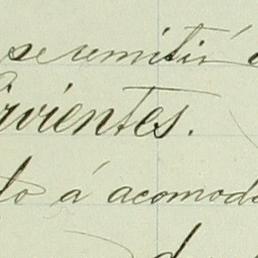 se remitir á
rvientes.
to á acomoda